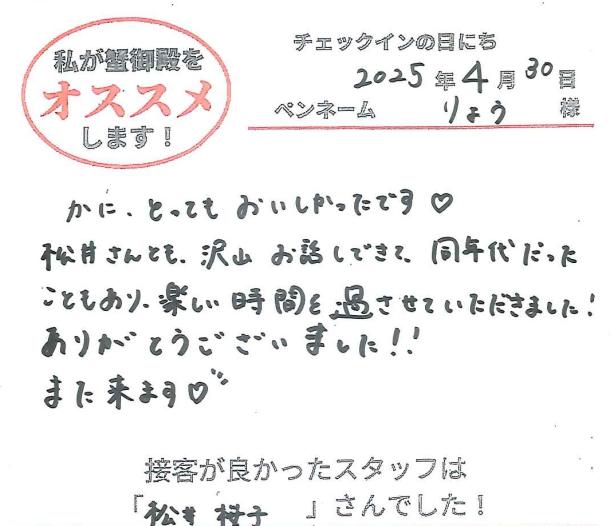 私が蟹御殿を
オススメ
します！
チェックインの日にち
2025年4月30日
ペンネーム りょう 様
かに、とっても おいしかったです♡
松井さんとも、沢山 お話しできて、同年代だった
こともあり、楽しい時間を過させていただきました!
ありがとうございました!!
また来ます♡
接客が良かったスタッフは
「松井 子」さんでした！